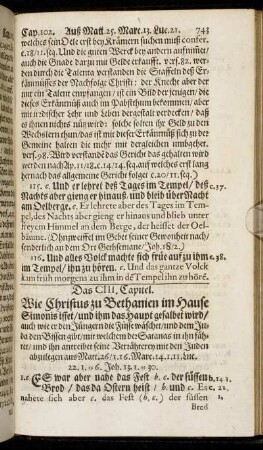 Cap. 102. Auß Matt. 25. Marc. 13. Luc. 21. 743
welches sein Oele erst bey Krämern suchen muß confer.
c. 18/11. seq. Und die guten Werck bey andern aufmutzet/
auch die Gnade darzu mit Gelde erkaufft. v. rf. 82. wer=
den durch die Talenta verstanden die Staffeln deß Er=
käntnisses der Nachfolge Christi: der Knecht aber der
nur ein Talent empfangen/ ist ein Bild der jenigen/ die
dieses Erkäntniß auch im Pabsthum bekommen/ aber
mit irrdischer Sehr und Leben dergestalt verdecken/ daß
es ihnen nichts nütz wird: solche solten ihr Geld zu den
Wechslern thun/ das ist mit dieser Erkäntniß sich zu der
Gemeine halten die mehr mit dergleichen umbgehet.
vers. 98. Wird verstanden das Gericht das gehalten wird
werden nach Ap. 11/18. c. 14/14. seq. auf welches erst lang
hernach das allgemeine Gericht folget c. 20/11. seq.)
115. c. Und er lehret deß Tages im Tempel/ deß c. 37.
Nachts aber gieng er hinauß und bleib über Nacht
am Oelberge. e. Er lehrete aber des Tages im Tem=
pel, des Nachts aber gieng er hinaus und blieb unter
freyem Himmel an dem Berge, der heisset der Oel=
bäume. (Ohnzweiffel im Gebet seiner Gewonheit nach/
sonderlich an dem Ort Gethsemane/ Joh. 18/2.)
116. Und alles Volck machte sich früe auf zu ihm c. 38.
im Tempel/ ihn zu hören. e. Und das gantze Volck
kam früh morgens zu ihm in dē Tempel ihn zu hörē.
Das CIII. Capitel.
Wie Christus zu Bethanien im Hause
Simonis isset/ und ihm das Haupt gesalbet wird/
auch wie er den Jüngern die Füsse wäschet/ und dem Ju=
da den Bissen gibt/ mit welchem der Satanas in ihn fäh=
ret/ und ihn antreibet seine Verrähterey mit den Jüden
abzulegen aus Matt. 26/1. 16. Marc. 14. 1. 11. Luc.
22. 1. 6. Joh. 13. 1. 30.
1. c ES war aber nahe das Fest b. c. der süssen b. 14. 1.
Brod/ das da Ostern heist/ b. und c. Es c. 22.
nahete sich aber c. das Fest (b. c.) der süssen 1.
Brod